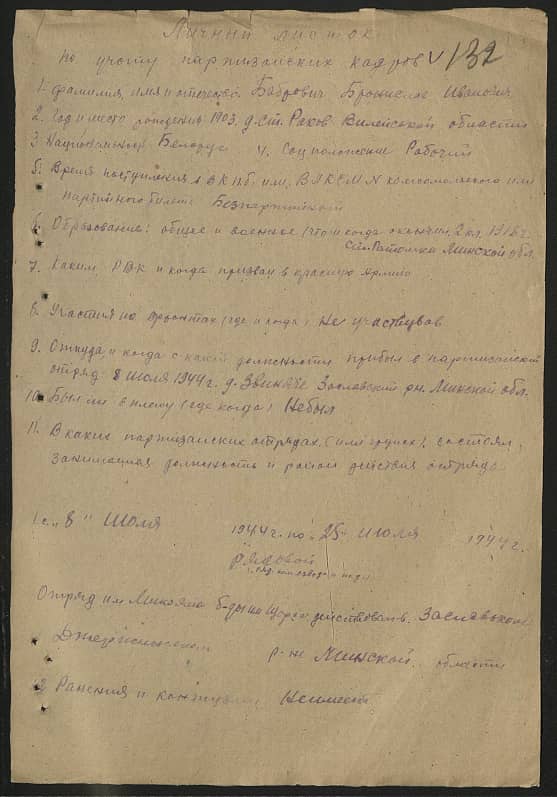 Личный листок
по учету партизанских кадров 132
1. Фамилия, имя и отчество Бабрович Бронислав Иванович
2. Год и место рождения 1903. д. Ст. Раков Вилейской области
3. Национальность Белорус 4. Соцположение Рабочий
5. Время поступления в ВКПб. или ВЛКСМ N комсомольского или
партийного билета Безпартийный
6. Образование: общее и военное (что и когда окончил) 2 кл. 1918 г.
Ст. Ратомка Минской обл.
7. Каким РВК и когда призван в красную Армию
8. Участия на фронтах (где и когда) Не участвовав
9. Откуда и когда с какой должности прибыл в партизанский
отряд 8 июля 1944 г. д. Звиняче Заславский рн. Минской обл.
10. Был ли в плену (где когда) Небыл
11. В каких партизанских отрядах, состоял,
занимаемая должность и район действия отряда
1 с „8" Июля 1944 г. по „25" июля 1944 г.
рядовой
Отряд им Микояна б-ды им Щорса действовал в Заславском
Дзержинском
р-не Минской области
12 Ранения и контузии Неимеет